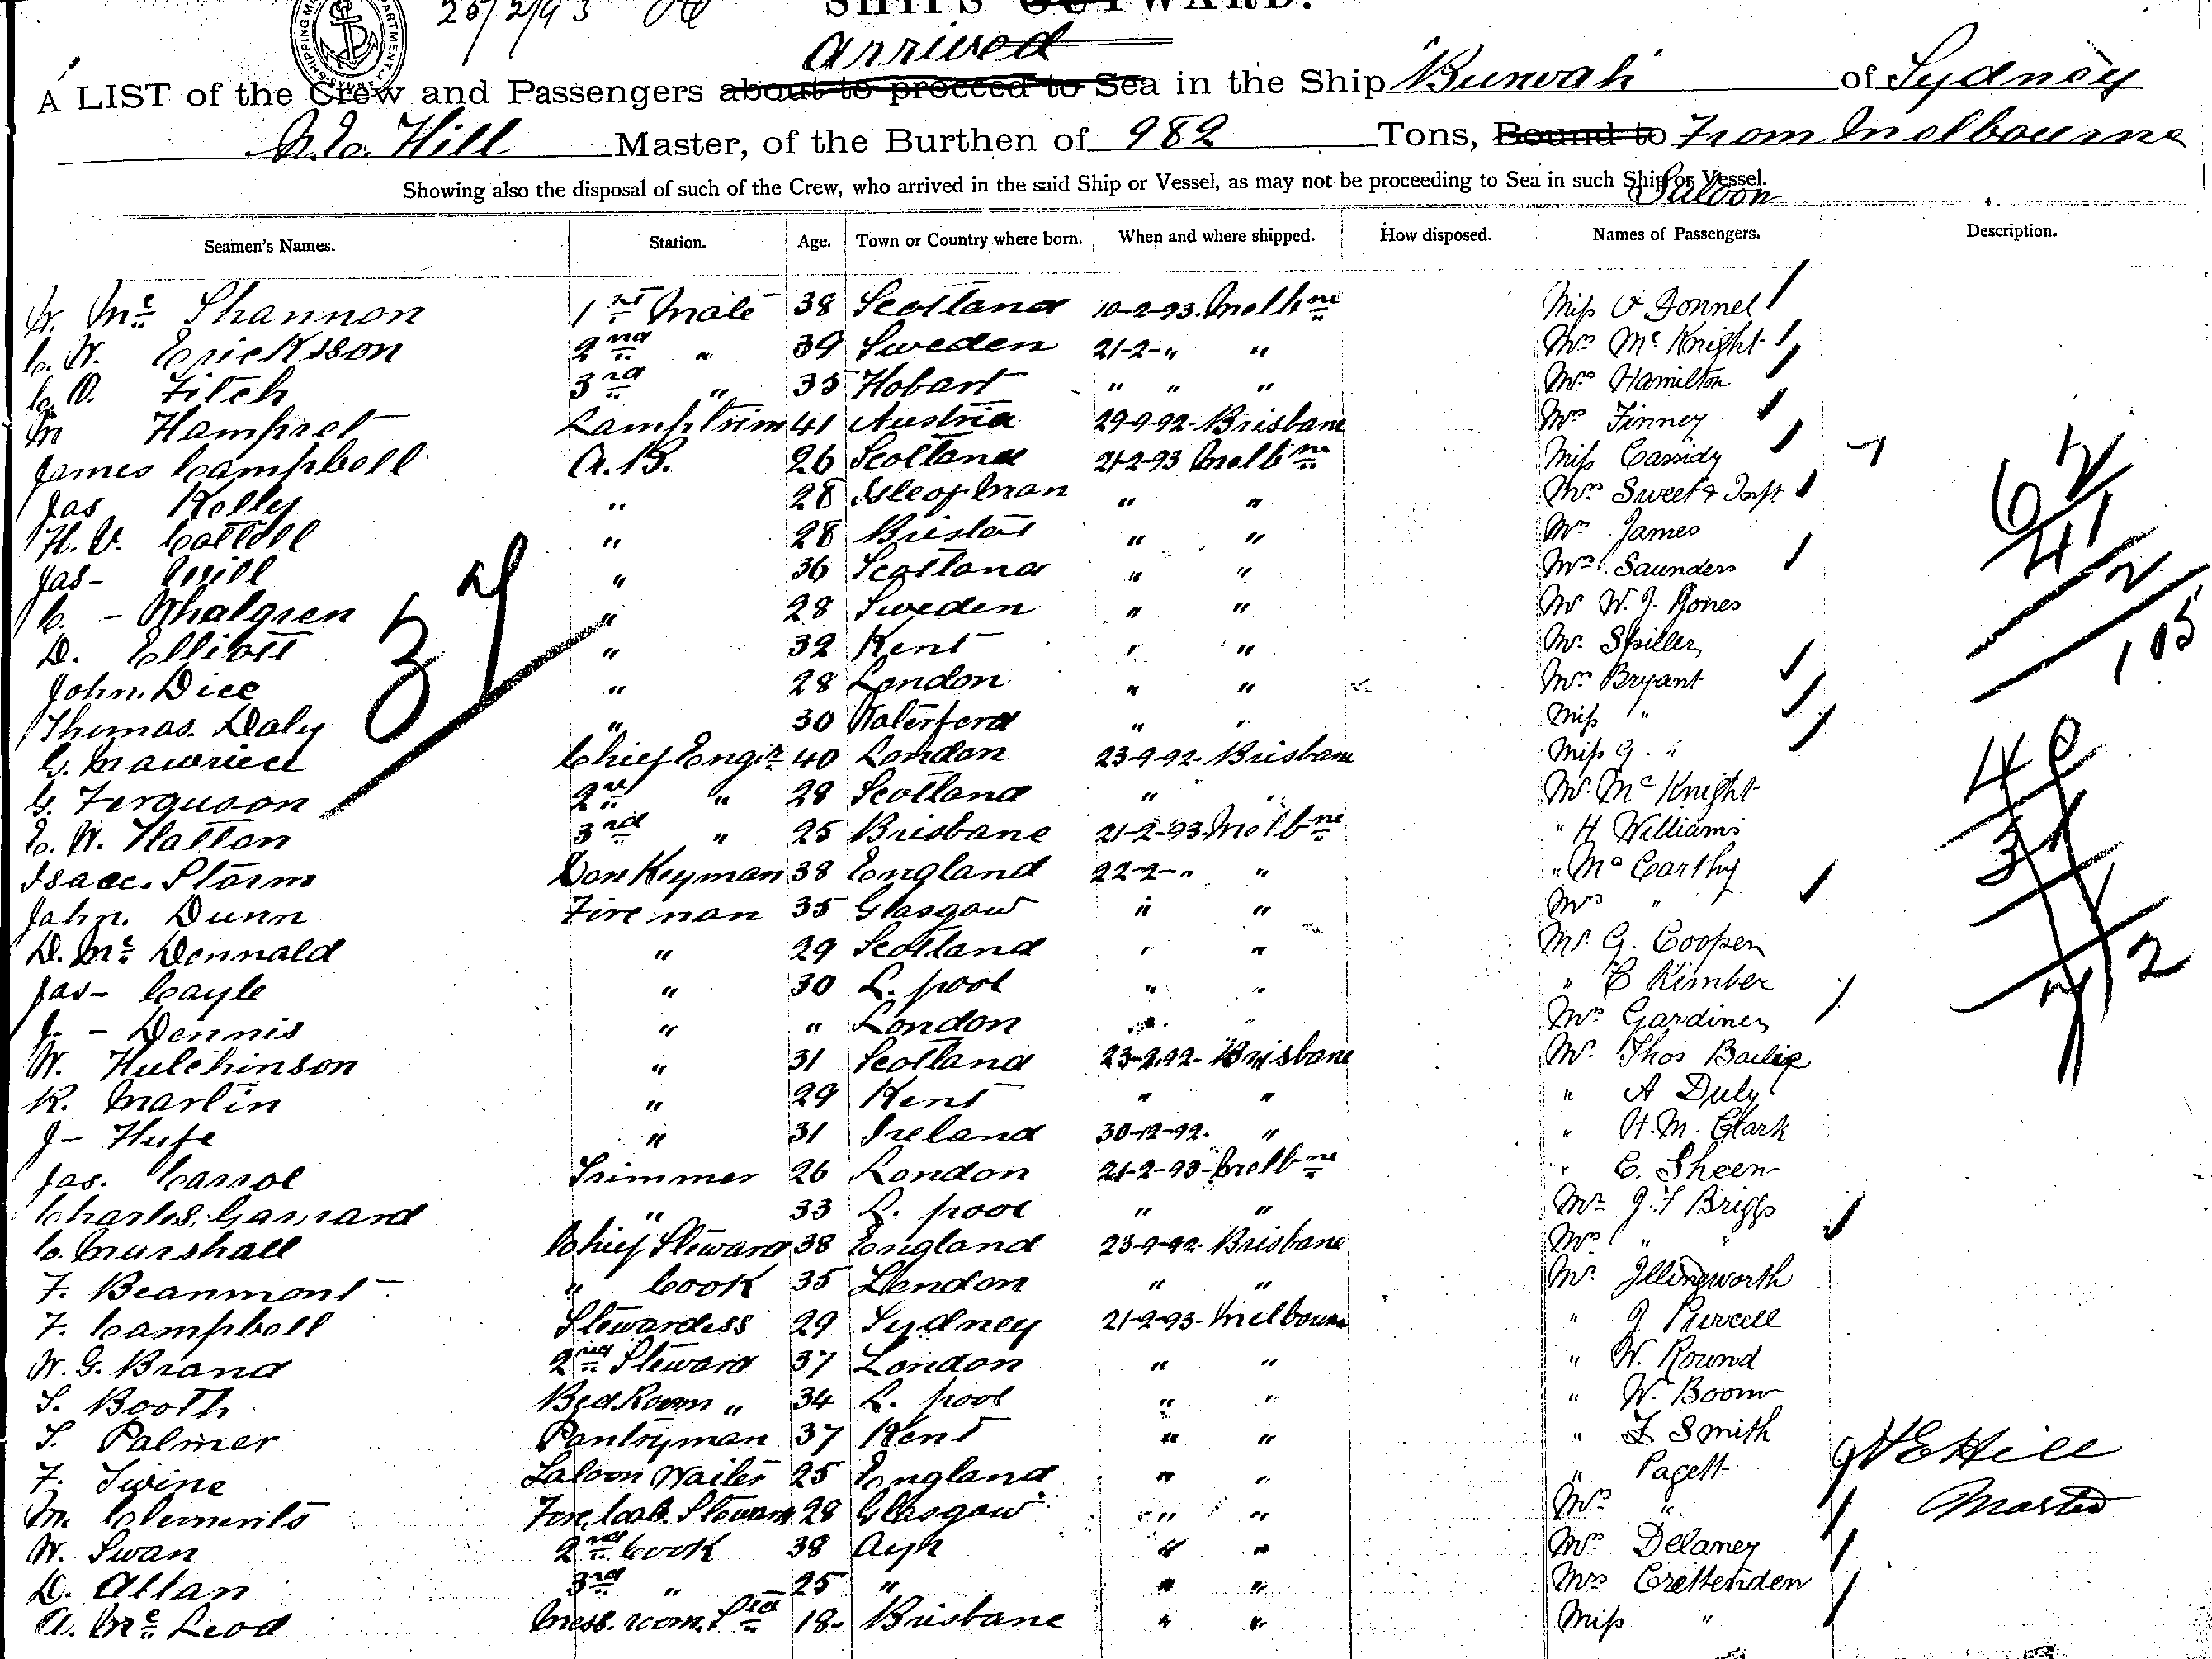 25/2/93
SHIPS OUTWARD.
arrived
A LIST of the Crew and Passengers about to proceed to Sea in the Ship Burwah of Sydney
Hill Master, of the Burthen of 982 Tons, Bound to From Melbourne
Showing also the disposal of such of the Crew, who arrived in the said Ship or Vessel, as may not be proceeding to Sea in such Ship or Vessel.
Saloon
Seamen's Names. Station. Age. Town or Country where born. When and where shipped. How disposed. Names of Passengers. Description.
W. Mc Shannon 1st Mate 38 Scotland 10-2-93. Melbne Miss O Donnel
C. W. Ericksson 2nd " 39 Sweden 21-2-" " Mrs Mc Knight
C. O. Fitch 3rd " 35 Hobart " " " Mrs Hamilton
M Hampret Lamptrim 41 Austria 29-9-92- Brisbane Mrs Finney
James Campbell A.B. 26 Scotland 21-2-93 Melbne Miss Cassidy
Jas Kelly " 28 Isle of Man " " Mrs Sweet & Inft
H. V. Cottell " 28 Bristol " " Mr James
Jas- " 36 Scotland " " Mrs Saunders
C. - Whalgren " 28 Sweden " " Mr W. J. Jones
D. Elliott " 32 Kent " " Mr. Spiller
John. Dice " 28 London " " Mrs Bryant
Thomas. Daly " 30 Waterford " " Miss "
G. Mawried Chief Engir 40 London 23-9-92- Brisbane Miss G. "
G. Ferguson 2nd " 28 Scotland " " Mr. Mc Knight
C. W. Hatton 3rd " 25 Brisbane 21-2-93 Melbne " H Williams
Isaac. Storm Donkeyman 38 England 22-2-" " " Mc Carthy
John. Dunn Fireman 35 Glasgow " " Mrs "
D. Mc Dennald " 29 Scotland " " Mr. G. Cooper
Jas- Cayle " 30 L. pool " " " C Kimber
J. - Dennis " " London " " Mrs Gardiner
W. Hutchinson " 31 Scotland 23-2-92- Brisbane Mr. Thos Bailie
R. Martin " 29 Kent " " " A Duly
J- Hufe " 31 Ireland 30-12-92. " " H. M. Clark
Jas. Carrol Trimmer 26 London 21-2-93- Melbne " C. Sheen
Charles. Garrard " 33 L. pool " " Mr J. F Briggs
C. Marshall Chief Steward 38 England 23-9-92- Brisbane Mrs " "
F. Beanmont " Cook 35 London " " Mr. Illingworth
F. Campbell Stewardess 29 Sydney 21-2-93- Melbourne " J Purcell
W. G. Brand 2nd Steward 37 London " " " W. Round
S. Booth Bed Room " 34 L. pool " " " W. Boom
S. Palmer Pantryman 37 Kent " " " F Smith
F. Swine Saloon Waiter 25 England " " " Pagett
M. Clements Fore Cab. Steward 28 Glasgow " " Mrs "
W. Swan 2nd Cook 38 Ayr " " Mrs Delaney
D. Allan 3rd " 25 " " " Mrs Crettenden
A. Mc Leod Mess. room. Std 18- Brisbane " " Miss "
37
62
41
2
105
Hill
Master